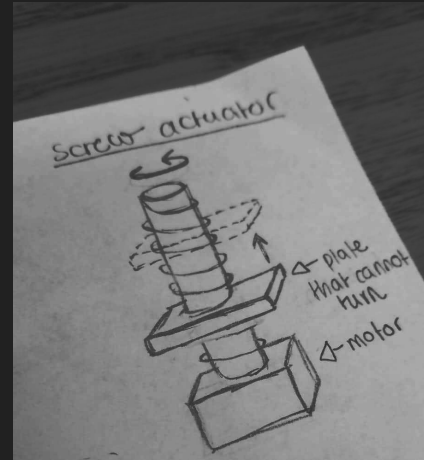 screw actuator
plate
that cannot
turn
motor